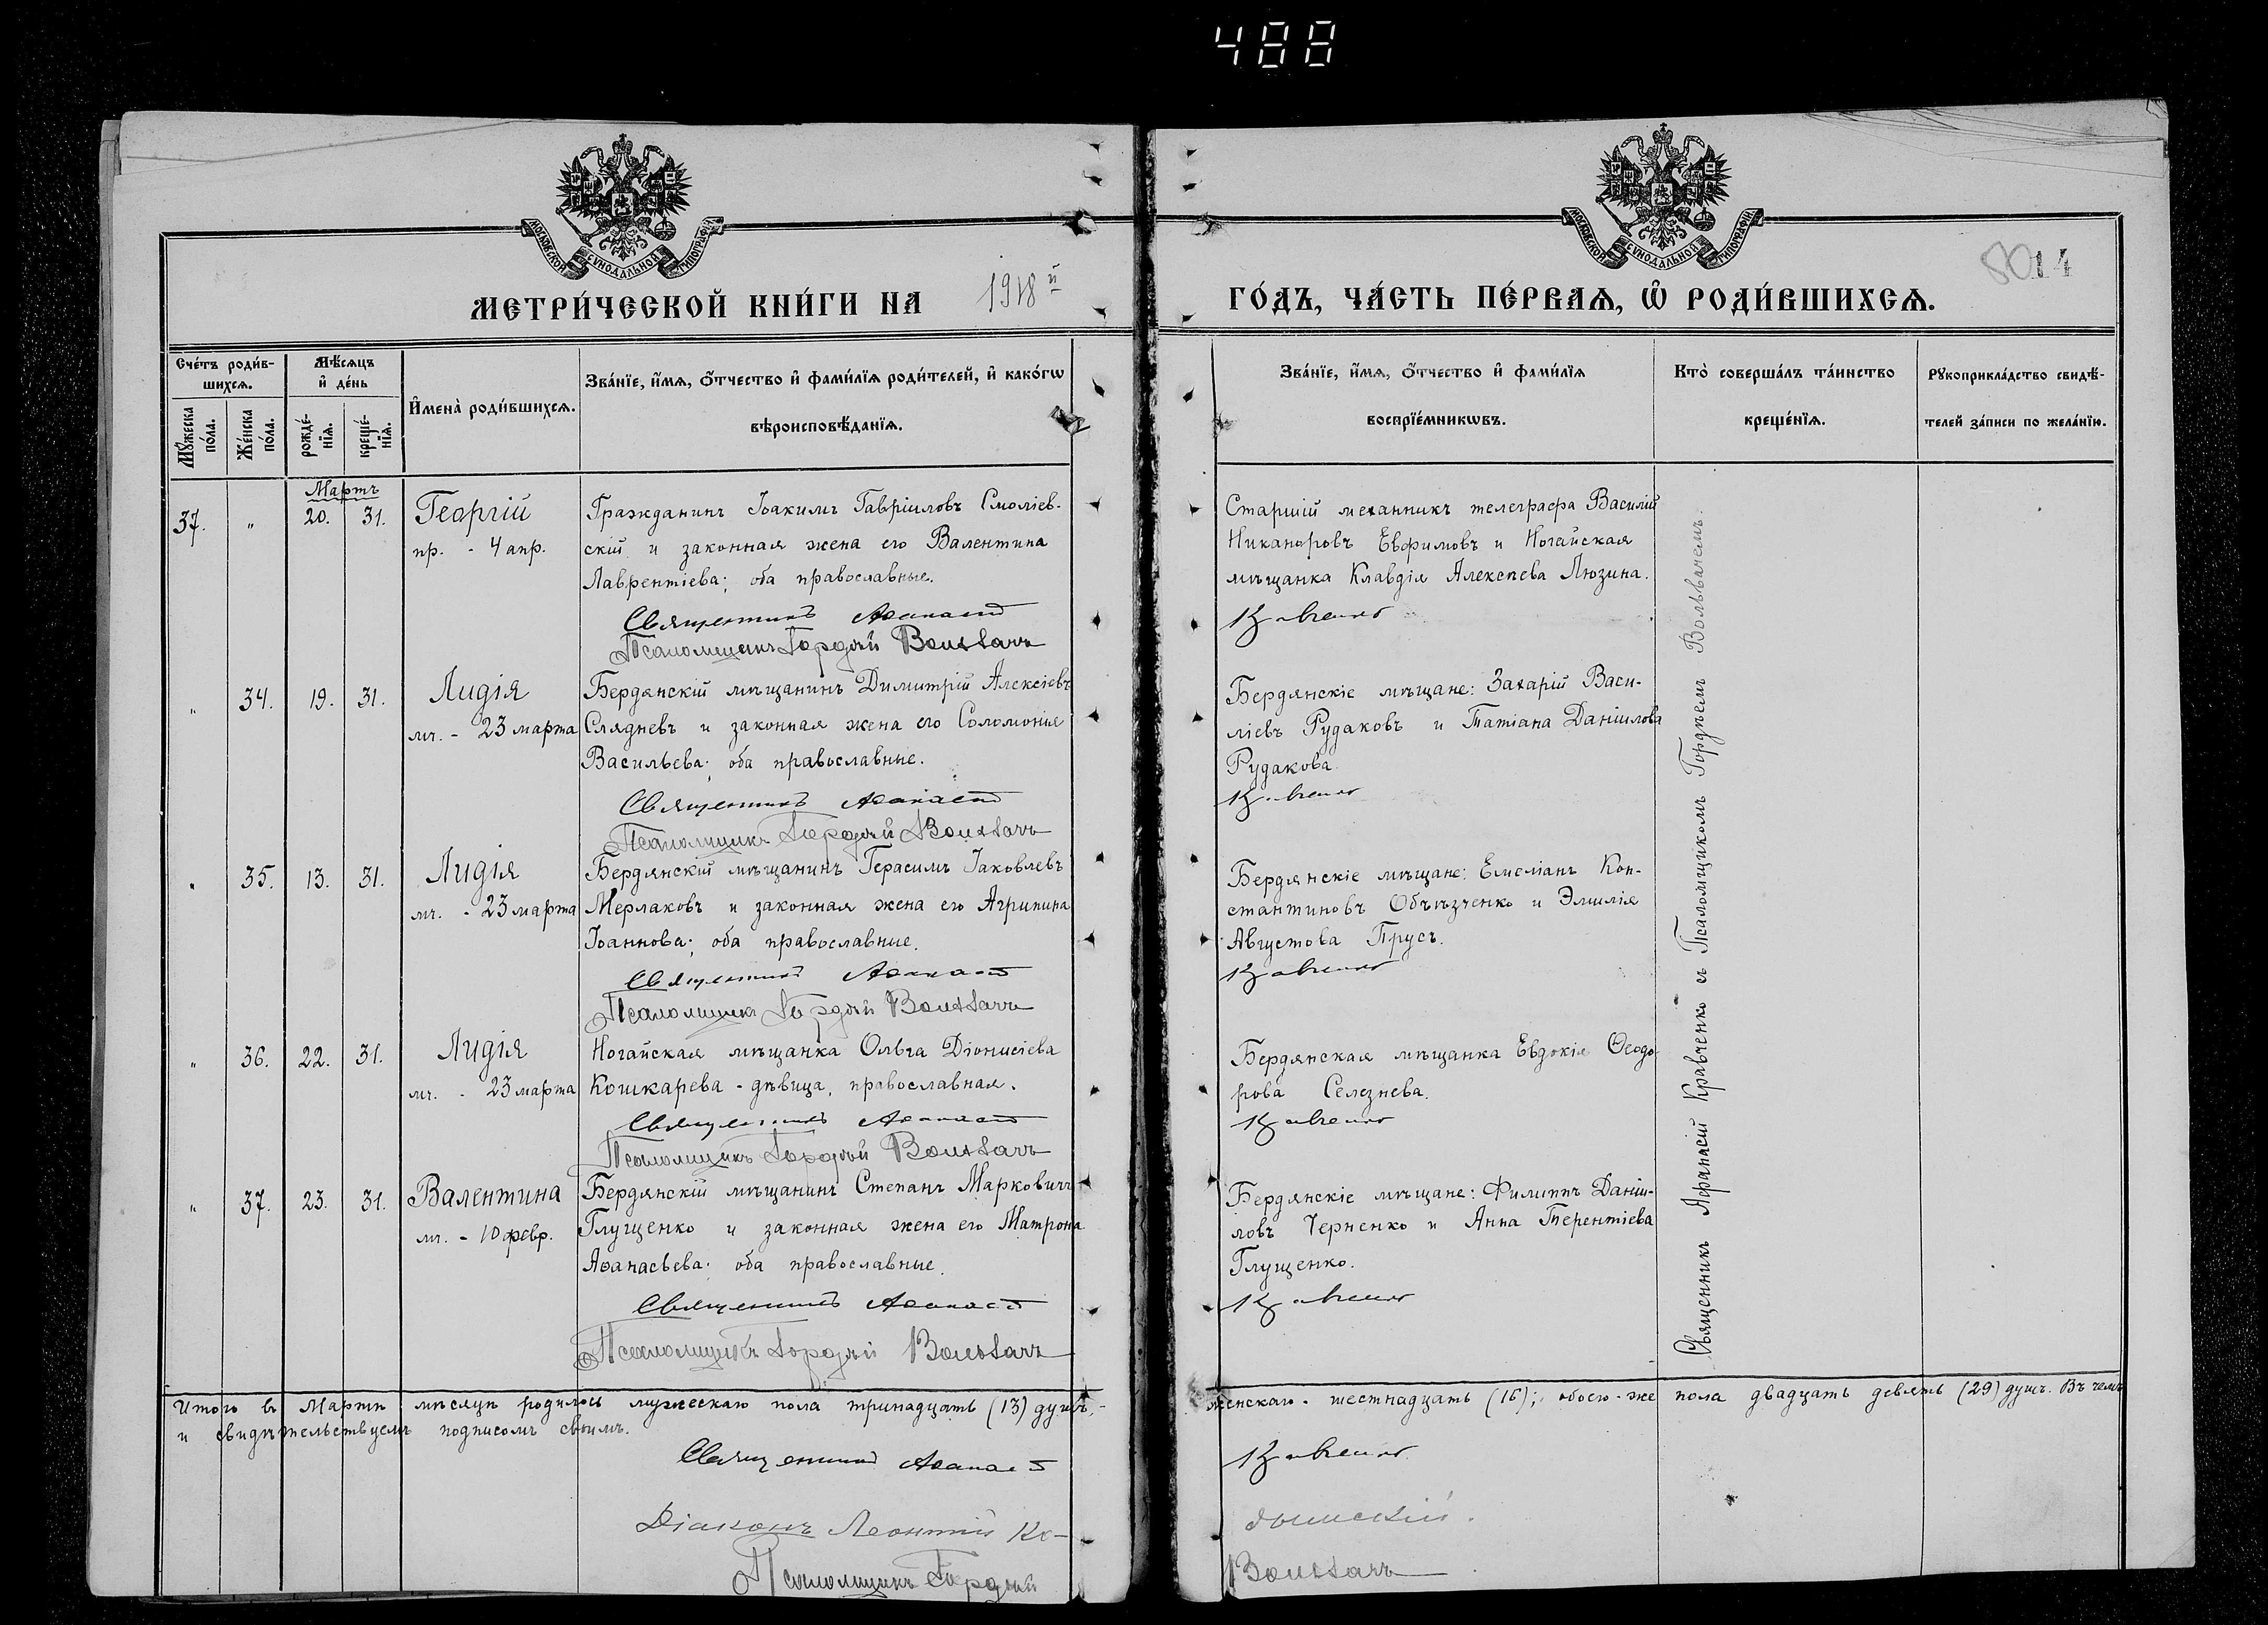 488
МОСКОВСКОЙ СѴНОДАЛЬНОЙ ТИПОГРАФІИ
МОСКОВСКОЙ СѴНОДАЛЬНОЙ ТИПОГРАФІИ
80 14
МЕТРИ́ЧЕСКОЙ КНИ́ГИ НА 1918й
ГО́ДЪ, ЧА́СТЬ ПЕ́РВАѦ, Ѿ РОДИ́ВШИХСѦ.
Сче́тъ роди́вшихсѧ.
Мꙋ́жеска по́ла.
Же́нска по́ла.
Мѣ́сѧцъ и҆ де́нь
рожде́нїѧ.
креще́нїѧ.
И҆мена̀ роди́вшихсѧ.
Зва́нїе, и҆́мѧ, ѻ҆́тчество и҆ фами́лїѧ роди́телей, и҆ како́гѡ
вѣроисповѣ́данїѧ.
Зва́нїе, и҆́мѧ, ѻ҆́тчество и҆ фами́лїѧ
воспрїе́мникѡвъ.
Кто̀ соверша́лъ та́инство
креще́нїѧ.
Рꙋкоприкла́дство свидѣ́-
телей за́писи по жела́нїю.
Мартъ
37. " 20. 31. Георгій
пр. - 4 апр.
Гражданинъ Іоакимъ Гавріиловъ Смоліев-
скій и законная жена его Валентина
Лаврентіева; оба православные.
Священникъ Аѳанасій
Псаломщикъ Гордѣй Вольвачъ
Старшій механникъ телеграфа Василій
Никаноровъ Евфимовъ и Ногайская
мѣщанка Клавдія Алексѣева Люзина.
Кравченко
" 34. 19. 31. Лидія
мч. - 23 марта
Бердянскій мѣщанинъ Димитрій Алексіевъ
Слядневъ и законная жена его Соломонія
Васильева; оба православные.
Священникъ Аѳанасій
Псаломщикъ Гордѣй Вольвачъ
Бердянскіе мѣщане: Захарій Васи-
ліевъ Рудаковъ и Татіана Даніилова
Рудакова.
Кравченко
" 35. 13. 31. Лидія
мч. - 23 марта
Бердянскій мѣщанинъ Герасимъ Іаковлевъ
Мерлаковъ и законная жена его Агрипина
Іоаннова; оба православные.
Священникъ Аѳанасій
Псаломщикъ Гордѣй Вольвачъ
Бердянскіе мѣщане: Емеліанъ Кон-
стантиновъ Объѣзченко и Эмилія
Августова Прусъ.
Кравченко
" 36. 22. 31. Лидія
мч. - 23 марта
Ногайская мѣщанка Ольга Діонисіева
Кошкарева - дѣвица, православная.
Священникъ Аѳанасій
Псаломщикъ Гордѣй Вольвачъ
Бердянская мѣщанка Евдокія Ѳеодо-
рова Селезнева.
Кравченко
" 37. 23. 31. Валентина
мч. - 10 февр.
Бердянскій мѣщанинъ Степанъ Марковичъ
Глущенко и законная жена его Матрона
Аѳанасьева; оба православные.
Священникъ Аѳанасій
Псаломщикъ Гордѣй Вольвачъ
Бердянскіе мѣщане: Филиппъ Даніи-
ловъ Черненко и Анна Терентіева
Глущенко.
Кравченко
Священникъ Афанасій Кравченко съ Псаломщикомъ Гордѣемъ Вольвачемъ.
Итого въ Мартѣ мѣсяцѣ родилось мужескаго пола тринадцать (13) душъ, -
женскаго - шестнадцать (16); обоего - же пола двадцать девять (29) душъ. Въ чемъ
и свидѣтельствуемъ подписомъ своимъ.
Священникъ Аѳанасій
Кравченко
Діаконъ Леонтій Ко-
Псаломщикъ Гордѣй
Вольвачъ